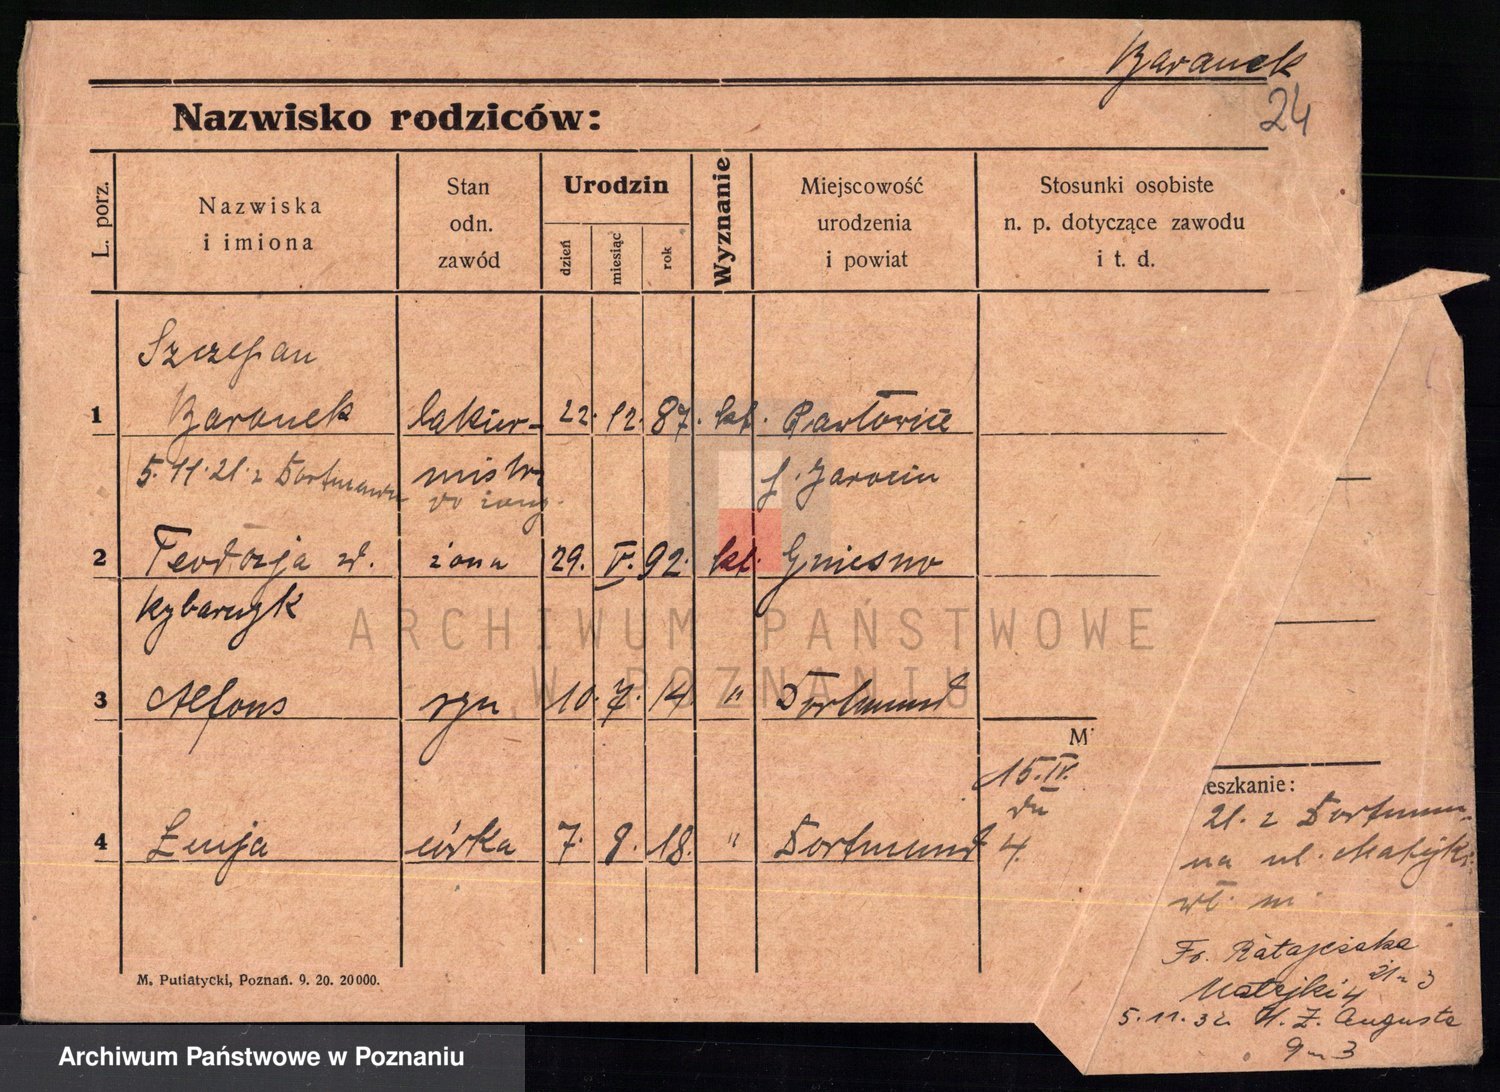 Baranek
24
Nazwisko rodziców:
L. porz.
Nazwiska
i imiona
Stan
odn.
zawód
Urodzin
dzień
miesiąc
rok
Wyznanie
Miejscowość
urodzenia
i powiat
Stosunki osobiste
n. p. dotyczące zawodu
i t. d.
Szczepan
1 Baranek lakier- 22. 12. 87. kt.
5.11.21. z Dortmundu mistrz Jarocin
2 Teodozja ur. żona 29. V. 92. kt. Gniesno
3 Alfons syn 10. 7. 14 " Dortmund
M
15.IV.
eszkanie:
21. z Dortmun
4 córka 7. 8. 18. " Dortmund 4.
na ul. Matejki
Fr. Ratajczaka
21 m 3
Matejki 4
5.11.32. Augusta
9 m 3
M. Putiatycki, Poznań. 9. 20. 20000.
ARCHIWUM PAŃSTWOWE
W POZNANIU
Archiwum Państwowe w Poznaniu